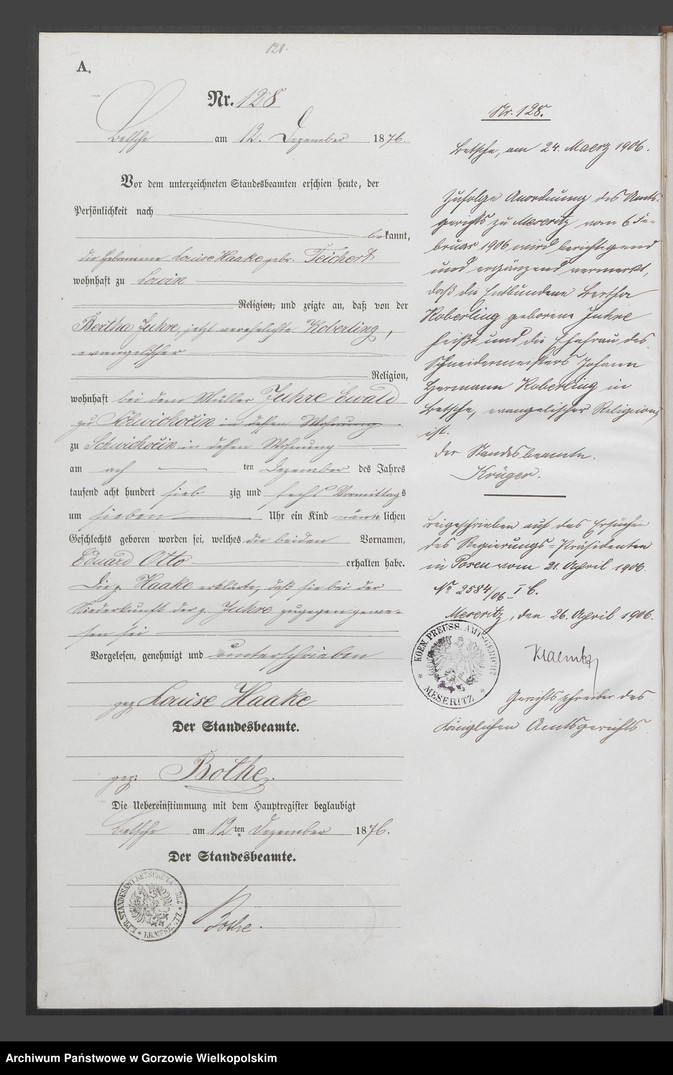 128.
A.
Nr. 128
Betsche am 12. Dezember 1876.
Vor dem unterzeichneten Standesbeamten erschien heute, der
Persönlichkeit nach
bekannt,
die Hebamme Louise Haake geb. Teichert
wohnhaft zu Lowin
Religion, und zeigte an, daß von der
Bertha Juhre, jetzt verehelichte Koberling,
evangelischer
Religion,
wohnhaft bei dem Müller Juhre Ewald
zu Schwichocin in dessen Wohnung
zu Schwichocin in dessen Wohnung
am ach ten Dezember des Jahres
tausend acht hundert sieb zig und sechs Vormittags
um sieben Uhr ein Kind männlichen
Geschlechts geboren worden sei, welches die beiden Vornamen,
Eduard Otto erhalten habe.
Die p. Haake erklärte, daß sie bei der
Niederkunft der p. Juhre zugegen gewe-
sen sei
Vorgelesen, genehmigt und unterschrieben
gez. Louise Haake
Der Standesbeamte.
gez. Bothe.
Die Uebereinstimmung mit dem Hauptregister beglaubigt
Betsche am 12ten Dezember 1876.
Der Standesbeamte.
Bothe.
Nr. 128.
Betsche, am 24. Maerz 1906.
Zufolge Anordnung des Amts-
gerichts zu Meseritz vom 6 Fe-
bruar 1906 wird berichtigend
und ergänzend vermerkt,
daß die Entbundene Bertha
Koberling geborene Juhre
heißt und die Ehefrau des
Schneidermeisters Johann
Hermann Koberling in
Betsche, evangelischer Religion,
ist.
Der Standesbeamte.
Krüger.
Beigeschrieben auf das Ersuchen
des Regierungs-Präsidenten
in Posen vom 21. April 1906
No 2584/06 I C.
Meseritz, den 26. April 1906.
KOEN. PREUSS. AMTSGERICHT
MESERITZ
Gerichtsschreiber des
Königlichen Amtsgerichts.
Archiwum Państwowe w Gorzowie Wielkopolskim